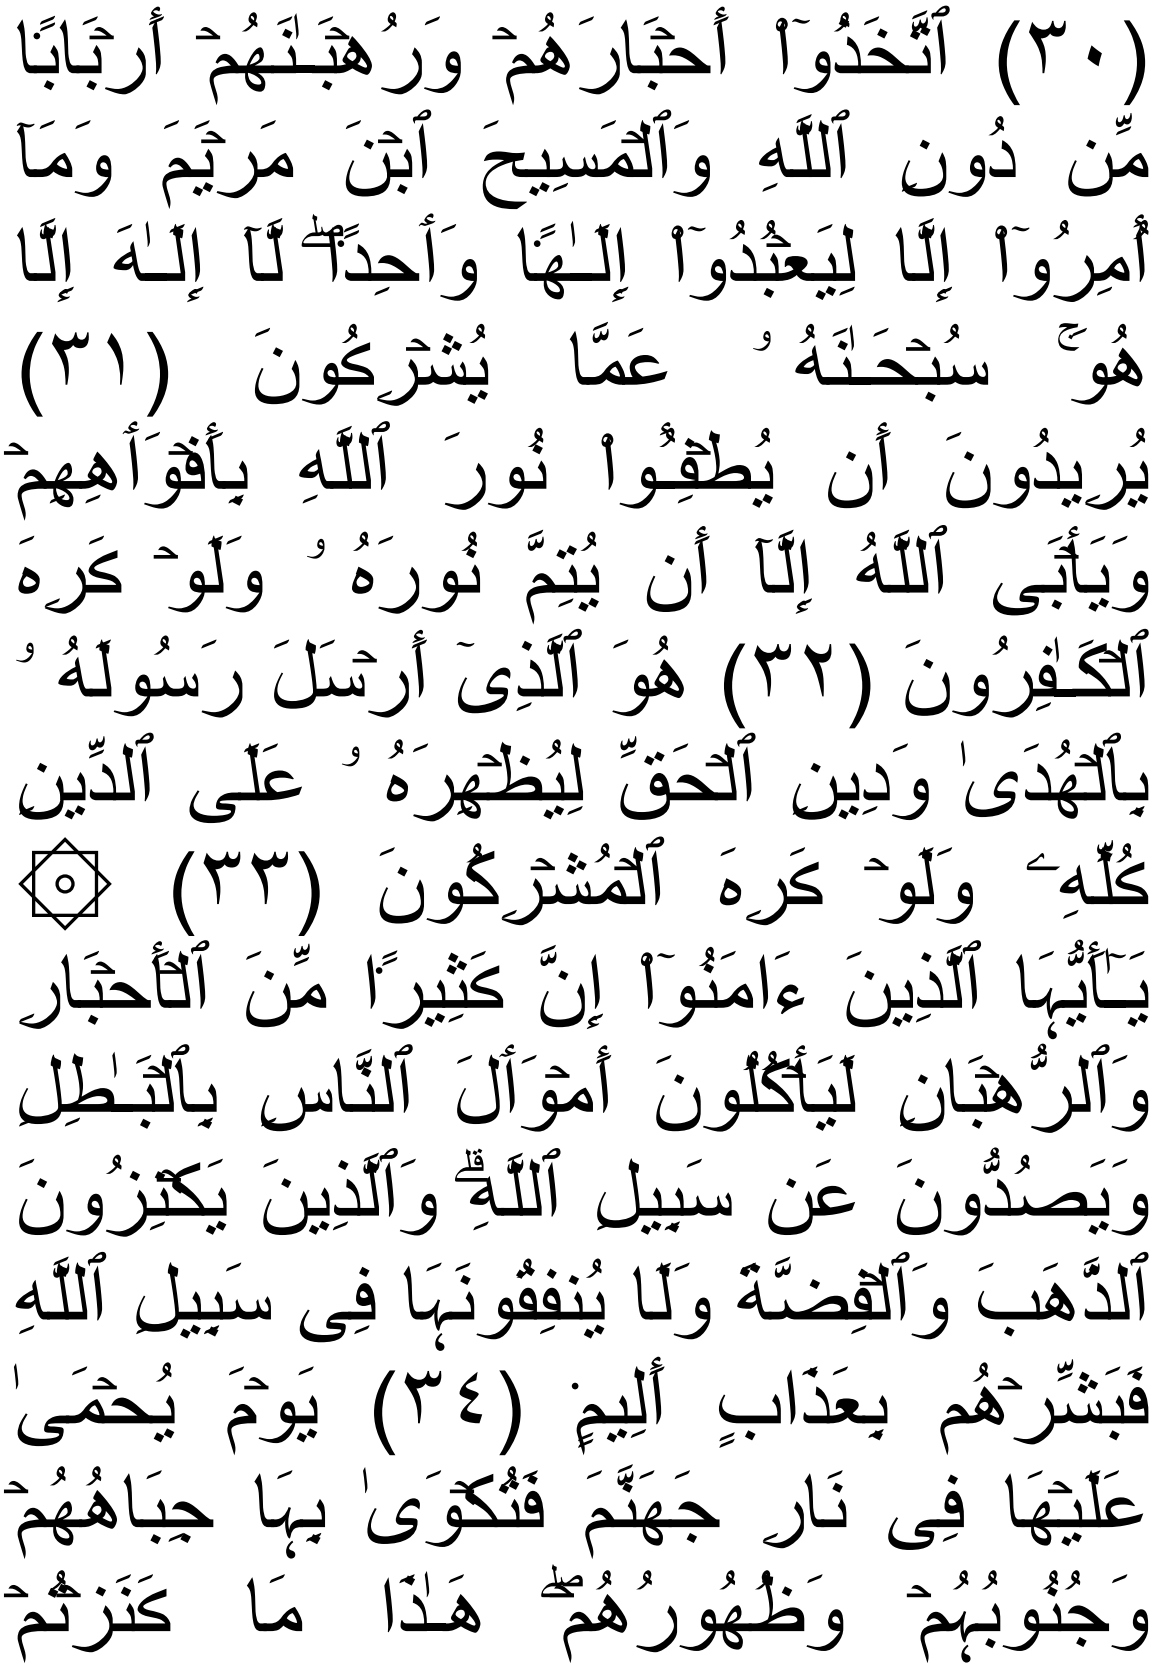 (٣٠) ٱتَّخَذُوٓا۟ أَحۡبَارَهُمۡ وَرُهۡبَـٰنَهُمۡ أَرۡبَابࣰا
مِّن دُونِ ٱللَّهِ وَٱلۡمَسِیحَ ٱبۡنَ مَرۡیَمَ وَمَاۤ
أُمِرُوۤا۟ إِلَّا لِیَعۡبُدُوۤا۟ إِلَـٰهࣰا وَ ٰ⁠حِدࣰاۖ لَّاۤ إِلَـٰهَ إِلَّا
هُوَۚ سُبۡحَـٰنَهُۥ عَمَّا یُشۡرِكُونَ (٣١)
یُرِیدُونَ أَن یُطۡفِـُٔوا۟ نُورَ ٱللَّهِ بِأَفۡوَ ٰ⁠هِهِمۡ
وَیَأۡبَى ٱللَّهُ إِلَّاۤ أَن یُتِمَّ نُورَهُۥ وَلَوۡ كَرِهَ
ٱلۡكَـٰفِرُونَ (٣٢) هُوَ ٱلَّذِیۤ أَرۡسَلَ رَسُولَهُۥ
بِٱلۡهُدَىٰ وَدِینِ ٱلۡحَقِّ لِیُظۡهِرَهُۥ عَلَى ٱلدِّینِ
كُلِّهِۦ وَلَوۡ كَرِهَ ٱلۡمُشۡرِكُونَ (٣٣) ۞
یَـٰۤأَیُّهَا ٱلَّذِینَ ءَامَنُوۤا۟ إِنَّ كَثِیرࣰا مِّنَ ٱلۡأَحۡبَارِ
وَٱلرُّهۡبَانِ لَیَأۡكُلُونَ أَمۡوَ ٰ⁠لَ ٱلنَّاسِ بِٱلۡبَـٰطِلِ
وَیَصُدُّونَ عَن سَبِیلِ ٱللَّهِۗ وَٱلَّذِینَ یَكۡنِزُونَ
ٱلذَّهَبَ وَٱلۡفِضَّةَ وَلَا یُنفِقُونَهَا فِی سَبِیلِ ٱللَّهِ
فَبَشِّرۡهُم بِعَذَابٍ أَلِیمࣲ (٣٤) یَوۡمَ یُحۡمَىٰ
عَلَیۡهَا فِی نَارِ جَهَنَّمَ فَتُكۡوَىٰ بِهَا جِبَاهُهُمۡ
وَجُنُوبُهُمۡ وَظُهُورُهُمۡۖ هَـٰذَا مَا كَنَزۡتُمۡ